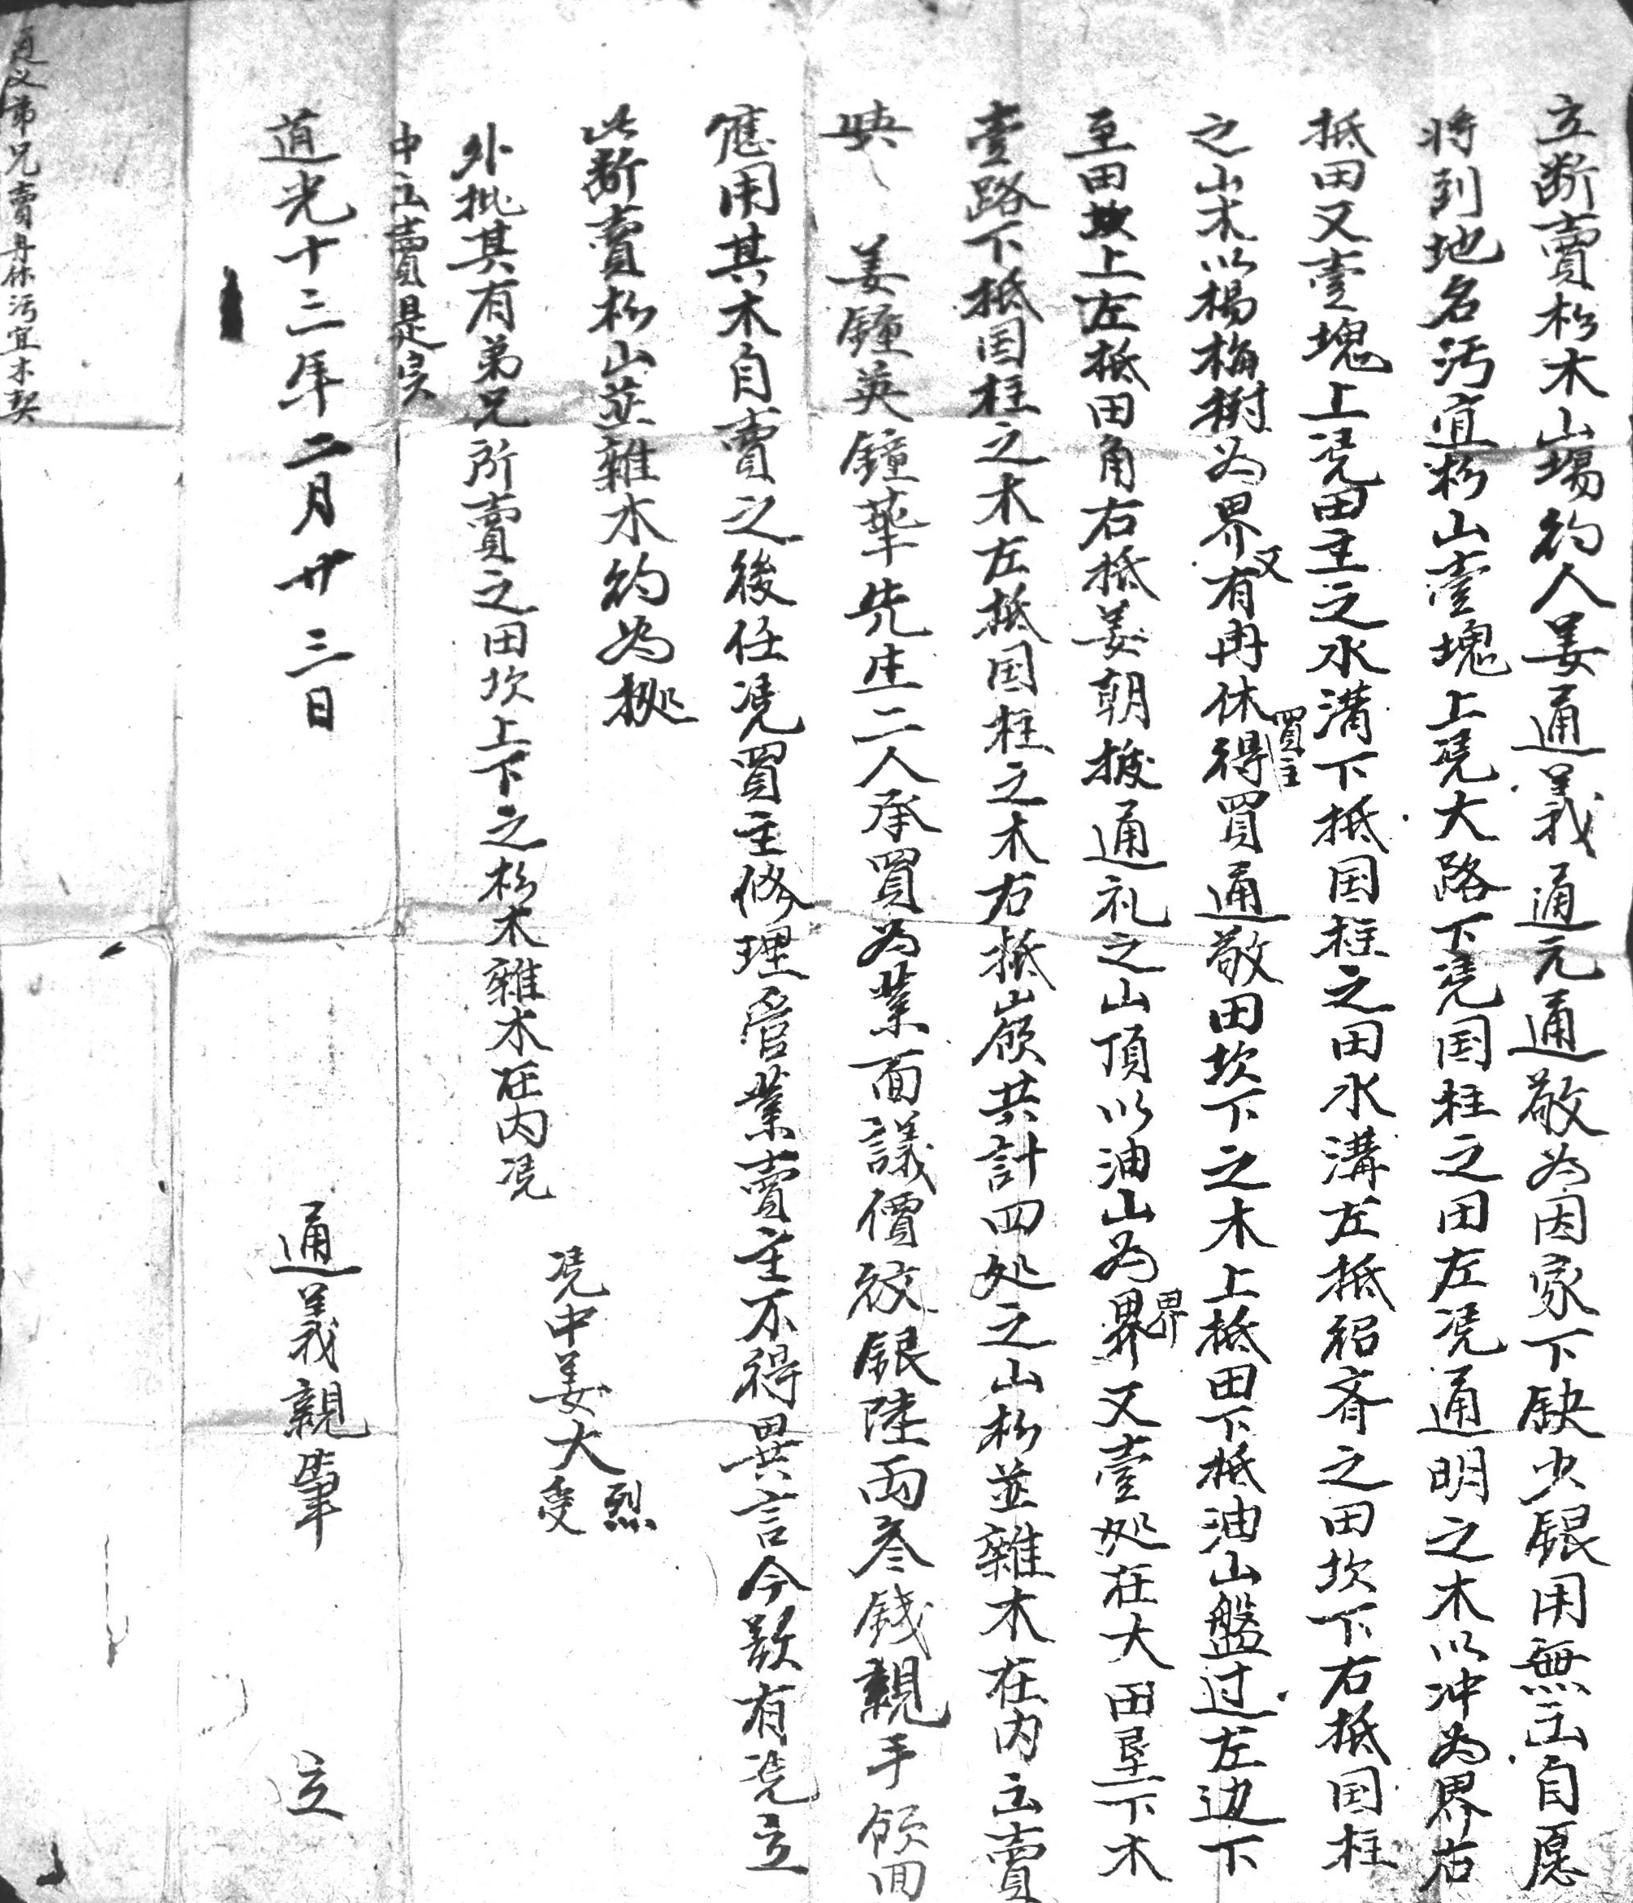 立断賣杉木山場約人姜通義通元通敬為因家下缺少銀用無出自愿
将到地名污宜杉山壹塊上凴大路下凴国柱之田左凴通明之木以冲為界右
抵田又壹塊上凴田主之水溝下抵国柱之田水溝左抵紹齐之田坎下右抵国柱
之山木以楊梅樹為界又有冉休得買主買通敬田坎下之木上抵田下抵油山盤过左边下
至田坎上左抵田角右抵姜朝撥通礼之山頂以油山為界界又壹处在大田垦下木
壹路下抵国柱之木左抵国柱之木右抵嶺共計四処之山杉並雜木在内出賣
與姜鐘英鐘華先生二人承買為業面議價紋銀陸両叁錢親手領回
應用其木自賣之後任凴買主修理管業賣主不得異言今欲有凴立
此断賣杉山並雜木約為拠
凴中姜大烈受
外批其有弟兄所賣之田坎上下之杉木雜木在内凴
中出賣是实
道光十三年二月廿三日 通義親筆 立
通义弟兄賣冉休污宜木契